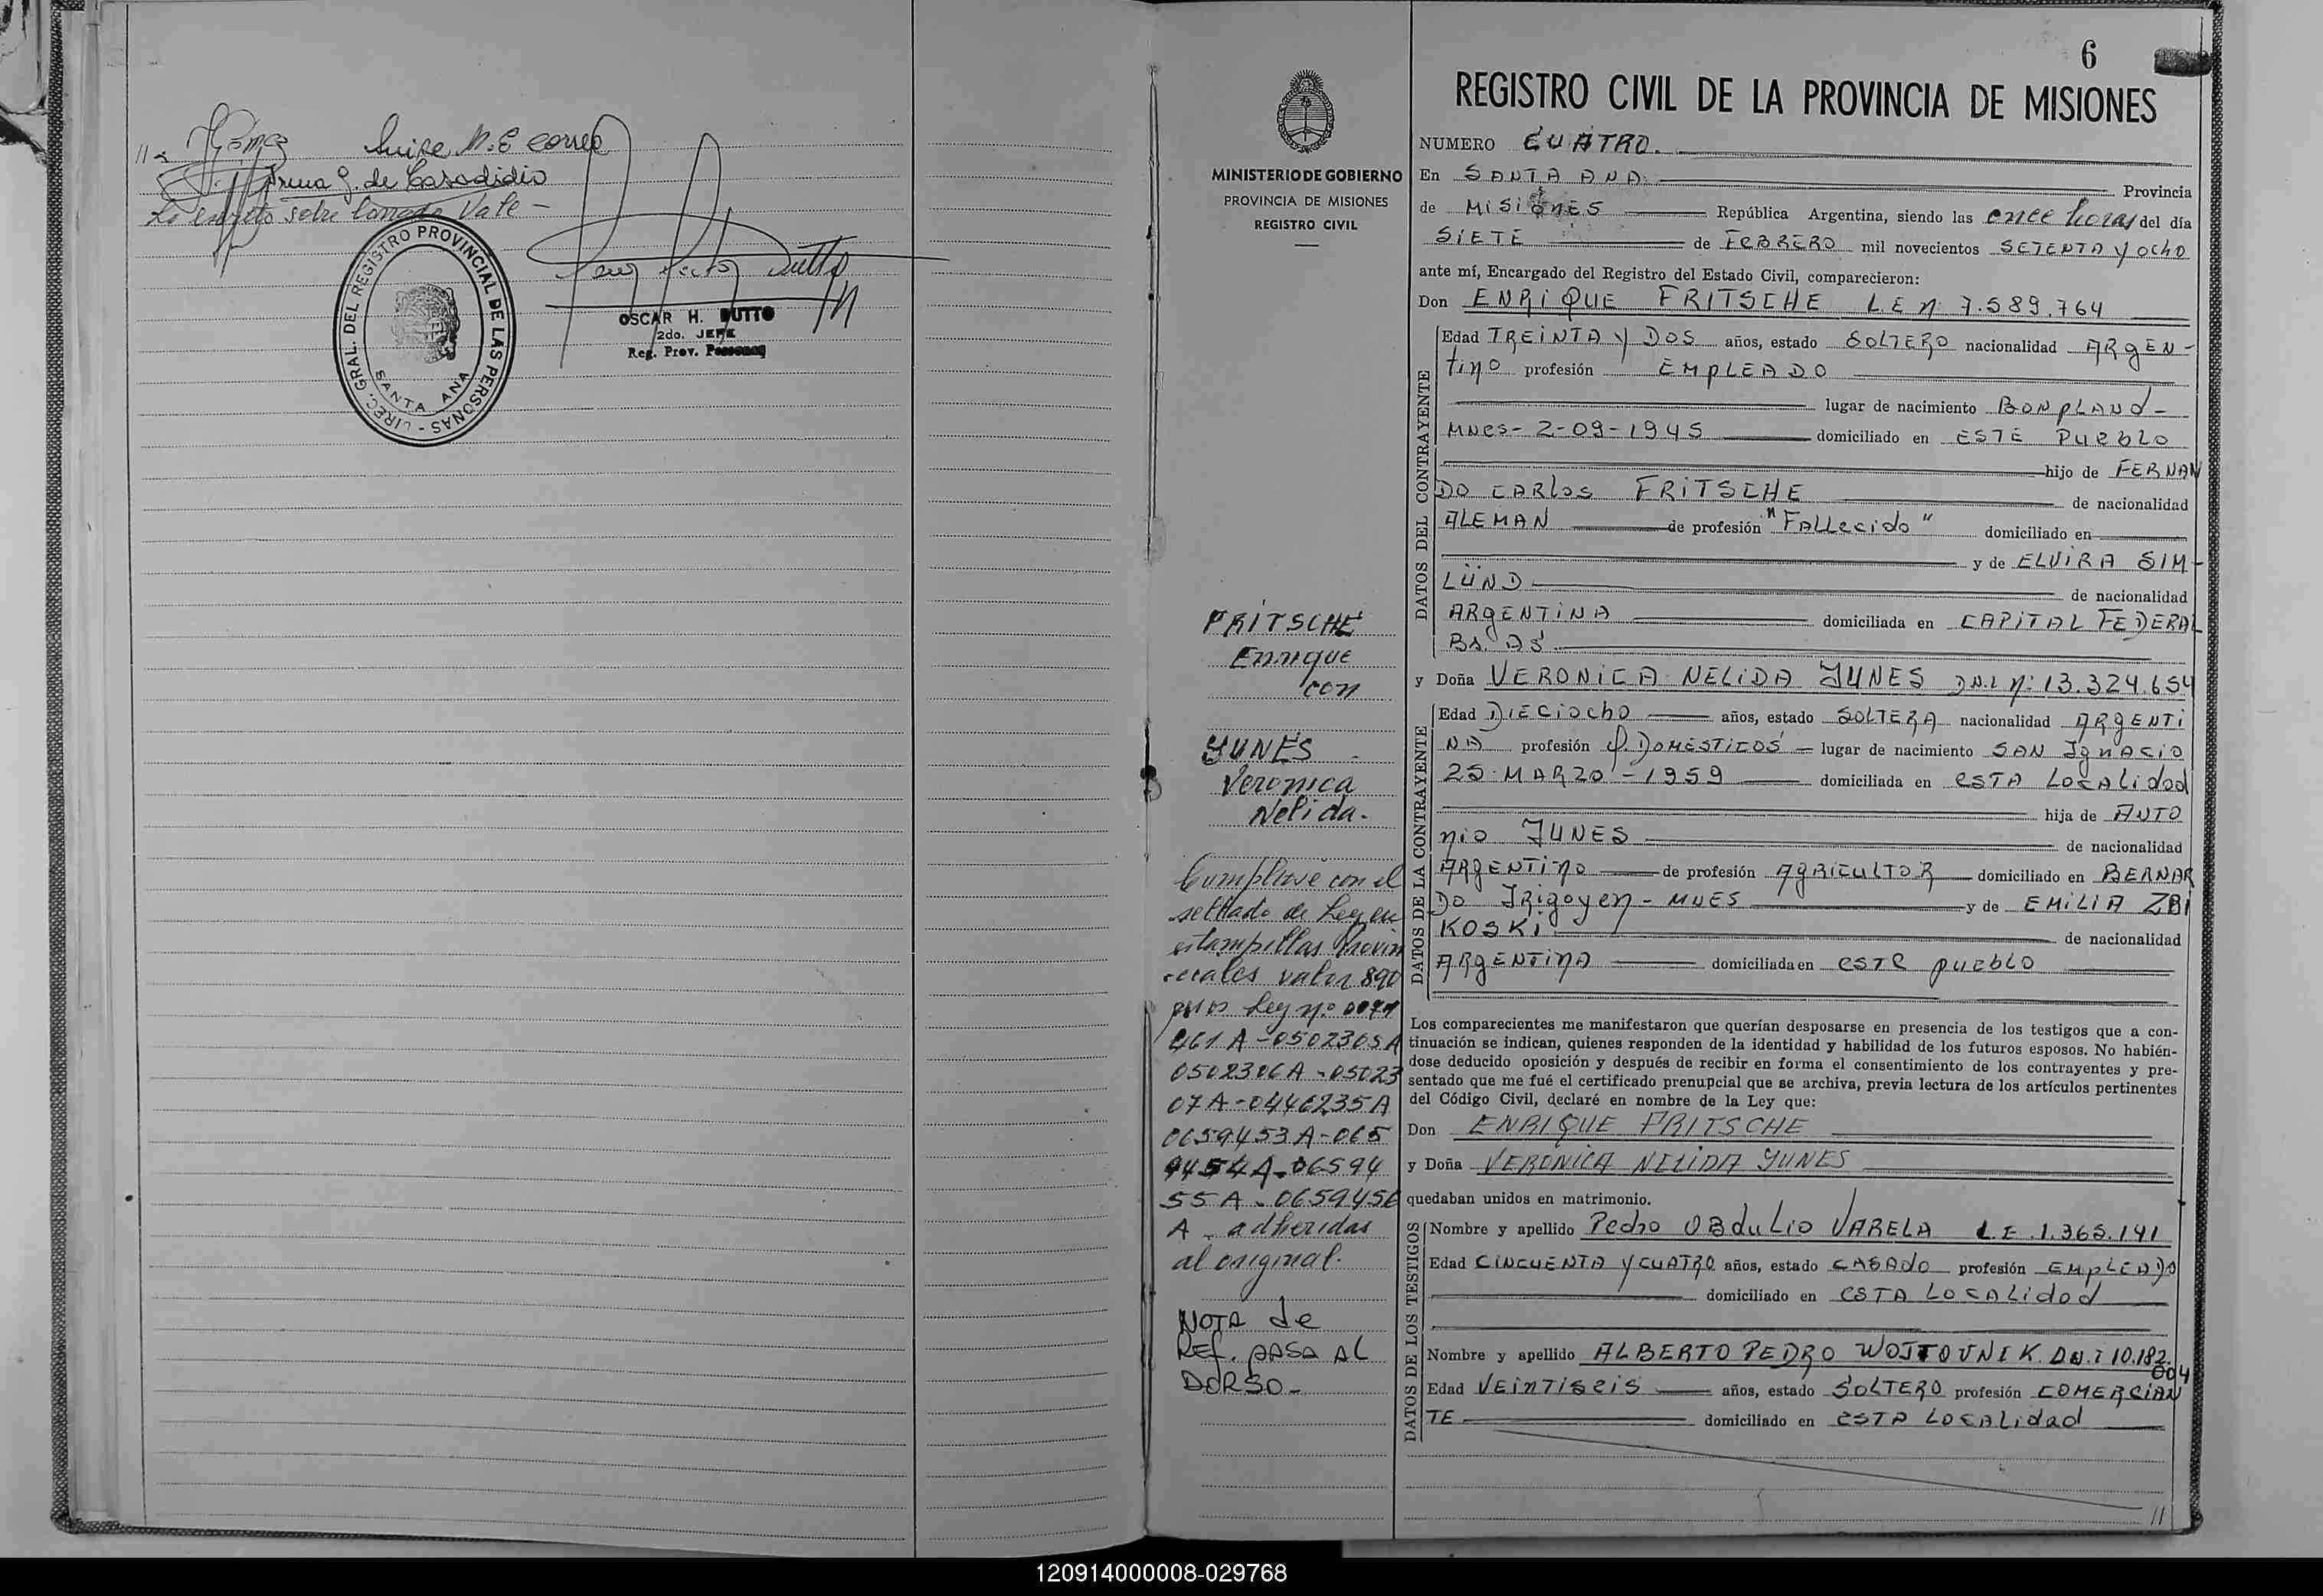 Luisa M. E Correa
Irma G. de Casadidio
Lo escrito sobre borrado Vale -
DIREC. GRAL. DEL REGISTRO PROVINCIAL DE LAS PERSONAS -
SANTA ANA
OSCAR H. DUTTO
2do. JEFE
Reg. Prov. Personas
MINISTERIO DE GOBIERNO
PROVINCIA DE MISIONES
REGISTRO CIVIL
FRITSCHE
Enrique
con
YUNES
Veronica
Nelida.
sellado de Ley en
estampillas Provin
-ciales valor 890
pesos Ley nº
461 A - 0502305A
0502306A - 05023
07A - 0446235A
0659453A - 065
9454A - 06594
55A - 0659456
A - adheridas
al original.
NOTA de
REf. pASA AL
DORSO -
6
REGISTRO CIVIL DE LA PROVINCIA DE MISIONES
NUMERO CUATRO.
En SANTA ANA. Provincia
de MISIONES República Argentina, siendo las once horas del día
SIETE de FEBRERO mil novecientos SETENTA y OCHO
ante mí, Encargado del Registro del Estado Civil, comparecieron:
Don ENRIQUE FRITSCHE L.E nº 7.589.764
DATOS DEL CONTRAYENTE
Edad TREINTA y DOS años, estado SOLTERO nacionalidad ARGEN-
tino profesión EMPLEADO
lugar de nacimiento BONPLAND-
MNES- 2-09-1945 domiciliado en ESTE PUEBLO
hijo de FERNAN
DO CARLOS FRITSCHE de nacionalidad
ALEMAN de profesión "FALLECIDO" domiciliado en
y de ELVIRA SIM-
LÜND de nacionalidad
ARGENTINA domiciliada en CAPITAL FEDERAL
Bs. AS.
y Doña VERONICA NELIDA YUNES D.N.I nº: 13.324.654
DATOS DE LA CONTRAYENTE
Edad DIECIOCHO años, estado SOLTERA nacionalidad ARGENTI
NA profesión Q. DOMESTICOS - lugar de nacimiento SAN IGNACIO
25-MARZO-1959 domiciliada en ESTA LOCALIDAD
hija de ANTO
NIO YUNES de nacionalidad
ARGENTINO de profesión AGRICULTOR domiciliado en BERNAR
DO IRIGOYEN - MNES y de EMILIA ZBI
KOSKI de nacionalidad
ARGENTINA domiciliada en ESTE PUEBLO
Los comparecientes me manifestaron que querían desposarse en presencia de los testigos que a con-
tinuación se indican, quienes responden de la identidad y habilidad de los futuros esposos. No habién-
dose deducido oposición y después de recibir en forma el consentimiento de los contrayentes y pre-
sentado que me fué el certificado prenupcial que se archiva, previa lectura de los artículos pertinentes
del Código Civil, declaré en nombre de la Ley que:
Don ENRIQUE FRITSCHE
y Doña VERONICA NELIDA YUNES
quedaban unidos en matrimonio.
DATOS DE LOS TESTIGOS
Nombre y apellido Pedro OBdULIO VARELA L.E. 1.365.141
Edad CINCUENTA y CUATRO años, estado CASADO profesión EMPLEADO
domiciliado en ESTA LOCALIDAD
Nombre y apellido ALBERTO PEDRO WOJTOVNIK D.N.I 10.182.
004
Edad VEINTISEIS años, estado SOLTERO profesión COMERCIAN
TE domiciliado en ESTA LOCALIDAD
//
120914000008-029768